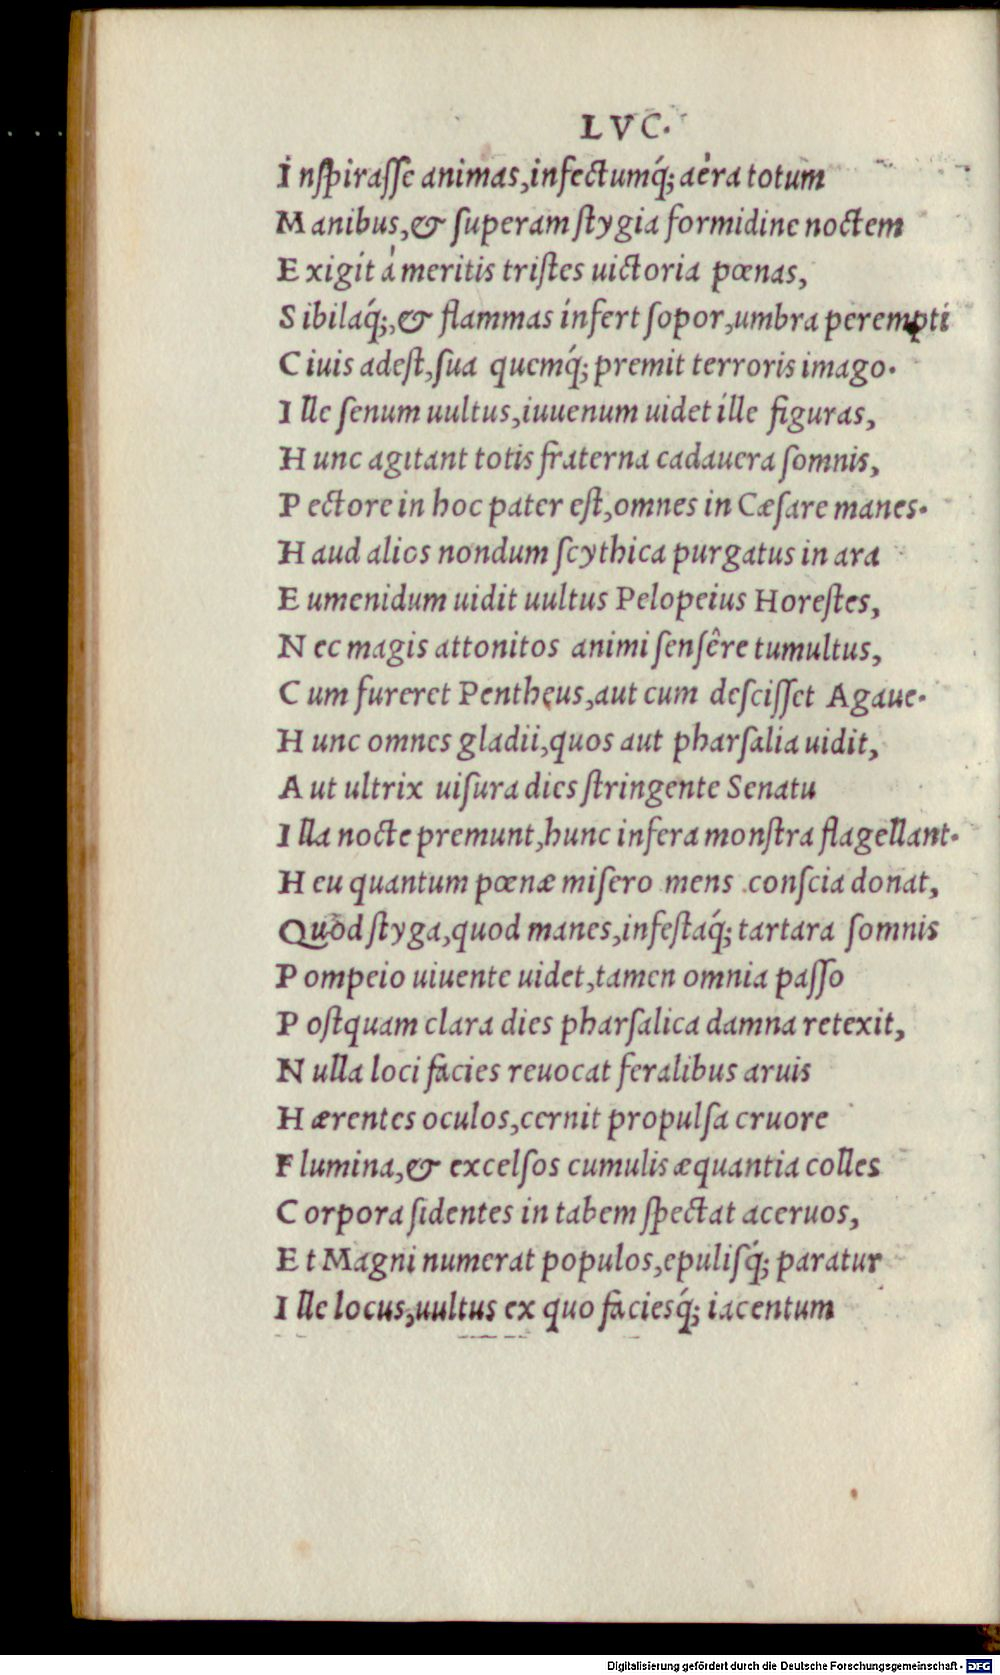 LVC.
I nſpiraſſe animas,infectumq́; aëra totum
M anibus,& ſuperam ſtygia formidine noctem
E xigit á meritis triſtes uictoria pœnas,
S ibilaq́;,& flammas infert ſopor,umbra perempti
C iuis adeſt,ſua quemq́; premit terroris imago.
I lle ſenum uultus,iuuenum uidet ille figuras,
H unc agitant totis fraterna cadauera ſomnis,
P ectore in hoc pater eſt,omnes in Cæſare manes.
H aud alios nondum ſcythica purgatus in ara
E umenidum uidit uultus Pelopeius Horeſtes,
N ec magis attonitos animi ſenſêre tumultus,
C um fureret Pentheus,aut cum deſciſſet Agaue.
H unc omnes gladii,quos aut pharſalia uidit,
A ut ultrix uiſura dies ſtringente Senatu
I lla nocte premunt,hunc infera monſtra flagellant.
H eu quantum pœnæ miſero mens conſcia donat,
Quòd ſtyga,quod manes,infeſtaq́; tartara ſomnis
P ompeio uiuente uidet,tamen omnia paſſo
P oſtquam clara dies pharſalica damna retexit,
N ulla loci facies reuocat feralibus aruis
H ærentes oculos,cernit propulſa cruore
F lumina,& excelſos cumulis æquantia colles
C orpora ſidentes in tabem ſpectat aceruos,
E t Magni numerat populos,epuliſq́; paratur
I lle locus,uultus ex quo faciesq́; iacentum
Digitalisierung gefördert durch die Deutsche Forschungsgemeinschaft - DFG